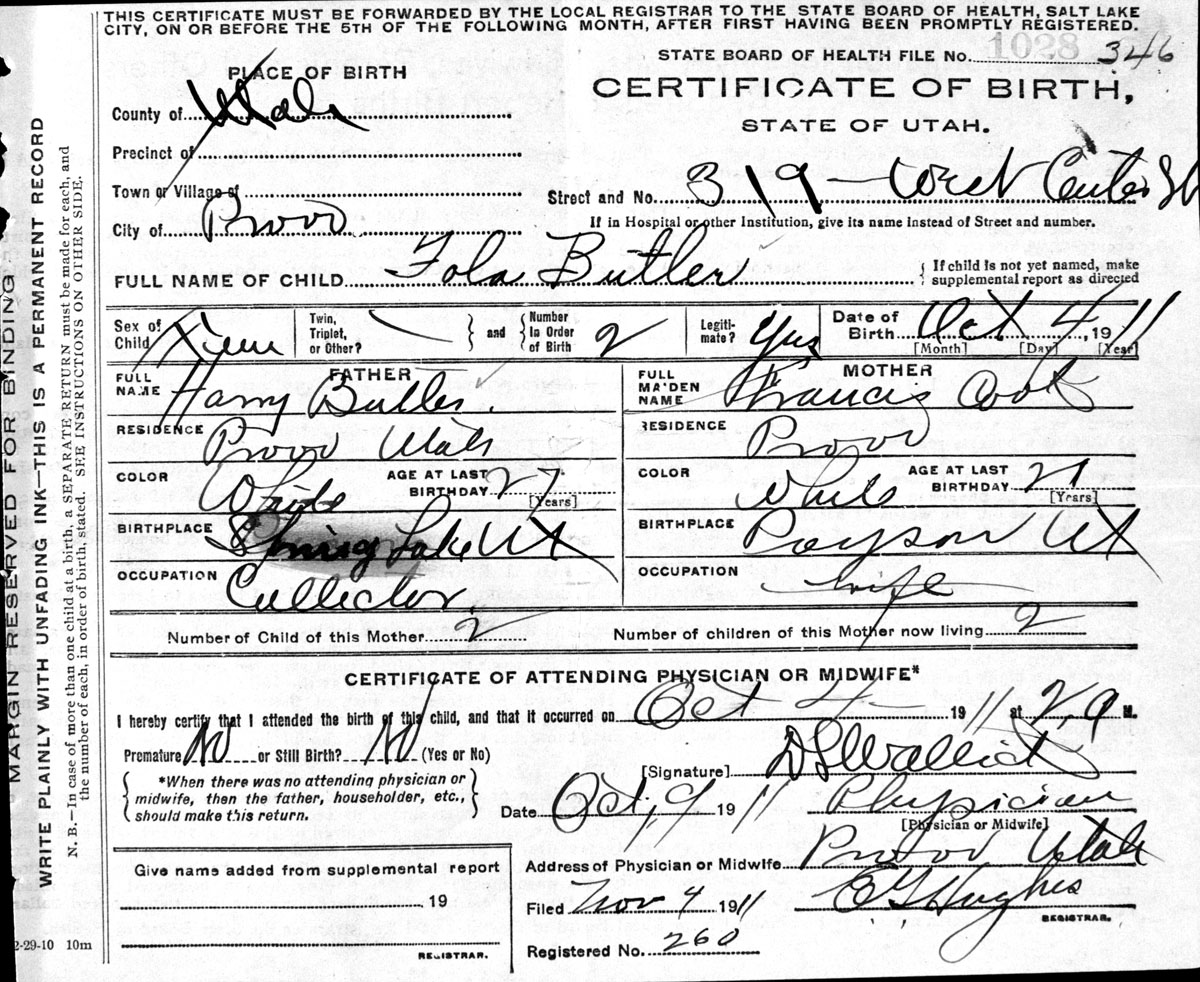 THIS CERTIFICATE MUST BE FORWARDED BY THE LOCAL REGISTRAR TO THE STATE BOARD OF HEALTH, SALT LAKE
CITY, ON OR BEFORE THE 5TH OF THE FOLLOWING MONTH, AFTER FIRST HAVING BEEN PROMPTLY REGISTERED.
STATE BOARD OF HEALTH FILE No. 1028 346
PLACE OF BIRTH
CERTIFICATE OF BIRTH,
STATE OF UTAH.
County of Utah
Precinct of
Town or Village of
Street and No. 319 - West Center St
City of Provo
If in Hospital or other Institution, give its name instead of Street and number.
FULL NAME OF CHILD Fola Butler
If child is not yet named, make
supplemental report as directed
Sex of Child Fem
Twin, Triplet, or Other?
and
Number In Order of Birth 2
Legiti- mate? Yes
Date of Birth Oct 4, 1911
[Month] [Day] [Year]
FATHER
FULL NAME Harry Butler.
RESIDENCE Provo Utah
COLOR White
AGE AT LAST BIRTHDAY 27
[Years]
BIRTHPLACE Spring Lake Ut
OCCUPATION Collector.
MOTHER
FULL MAIDEN NAME Francis
RESIDENCE Provo
COLOR White
AGE AT LAST BIRTHDAY 27
[Years]
BIRTHPLACE Payson Ut
OCCUPATION wife
Number of Child of this Mother 2
Number of children of this Mother now living 2
CERTIFICATE OF ATTENDING PHYSICIAN OR MIDWIFE*
I hereby certify that I attended the birth of this child, and that it occurred on Oct 4 1911 at 2,9 M.
Premature No or Still Birth? No (Yes or No)
*When there was no attending physician or
midwife, then the father, householder, etc.,
should make this return.
[Signature]
Date Oct, 9 1911
Physician
[Physician or Midwife]
Address of Physician or Midwife Provo Utah
Filed Nov 4 1911
E G Hughes
REGISTRAR.
Registered No. 260
Give name added from supplemental report
19
REGISTRAR.
2-29-10 10m
MARGIN RESERVED FOR BINDING
WRITE PLAINLY WITH UNFADING INK—THIS IS A PERMANENT RECORD
N. B.—In case of more than one child at a birth, a SEPARATE RETURN must be made for each, and
the number of each, in order of birth, stated. SEE INSTRUCTIONS ON OTHER SIDE.